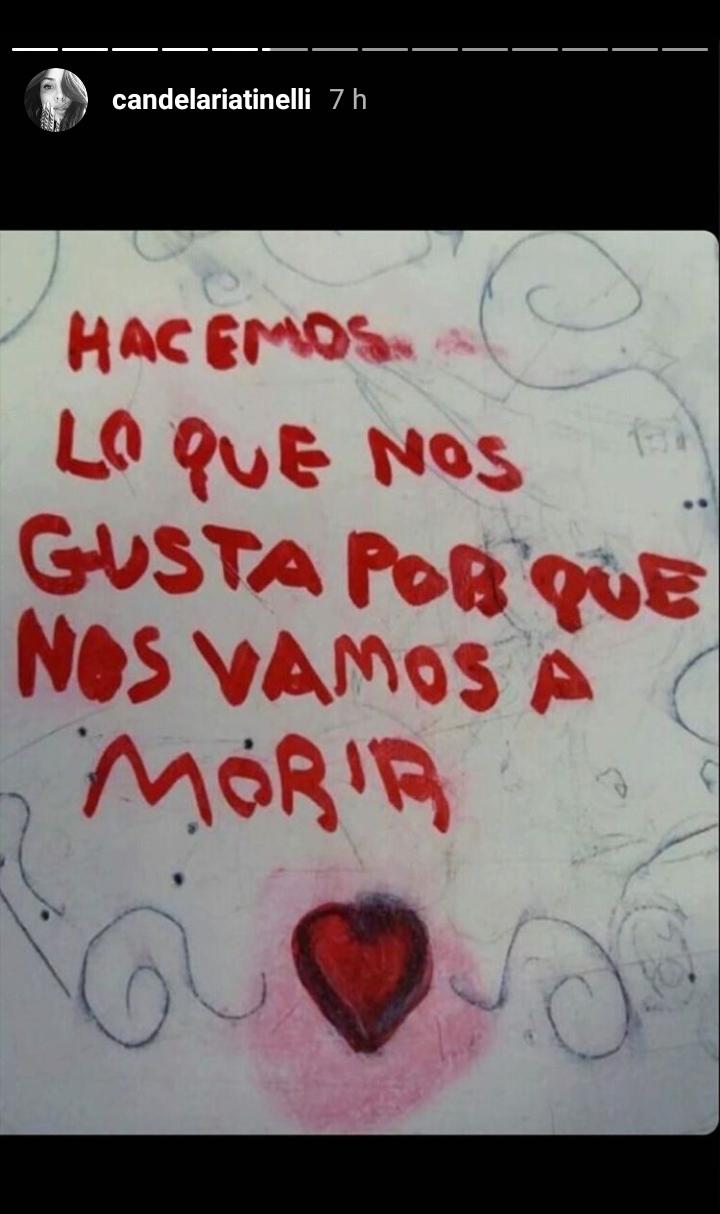 candelariatinelli 7 h
HACEMOS
LO QUE NOS
GUSTA POR QUE
NOS VAMOS A
MORIR